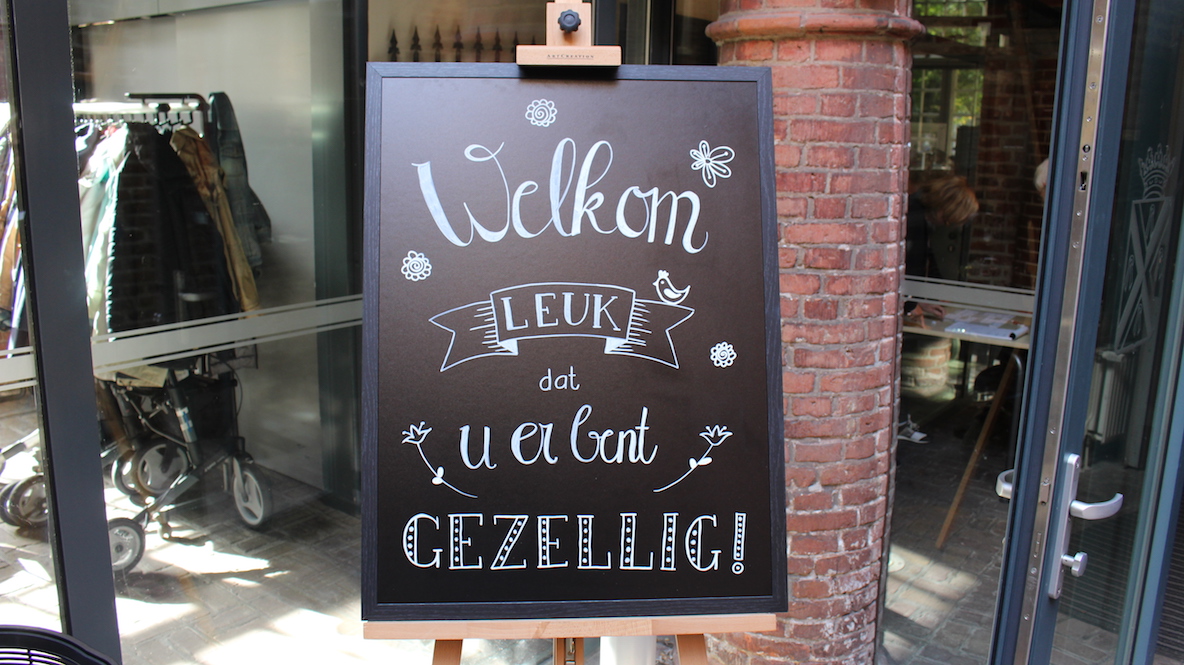 ARTCREATION
Welkom
LEUK
dat
u er bent
GEZELLIG!